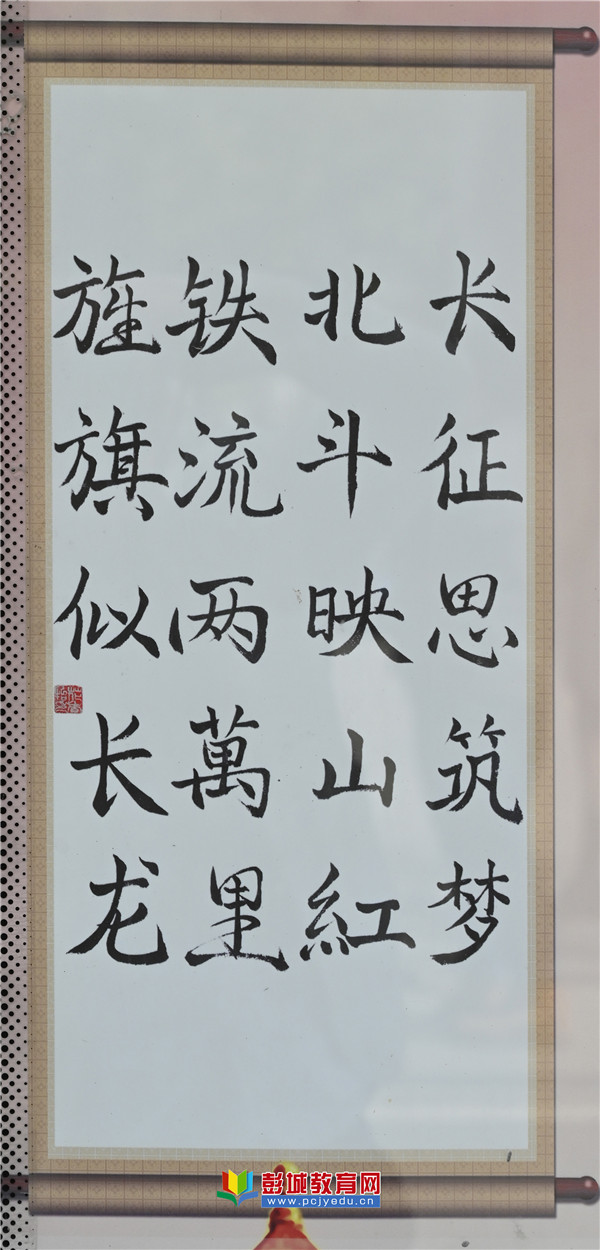 长征思筑梦
北斗映山紅
铁流两萬里
旌旗似长龙
彭城教育网
www.pcjyedu.cn